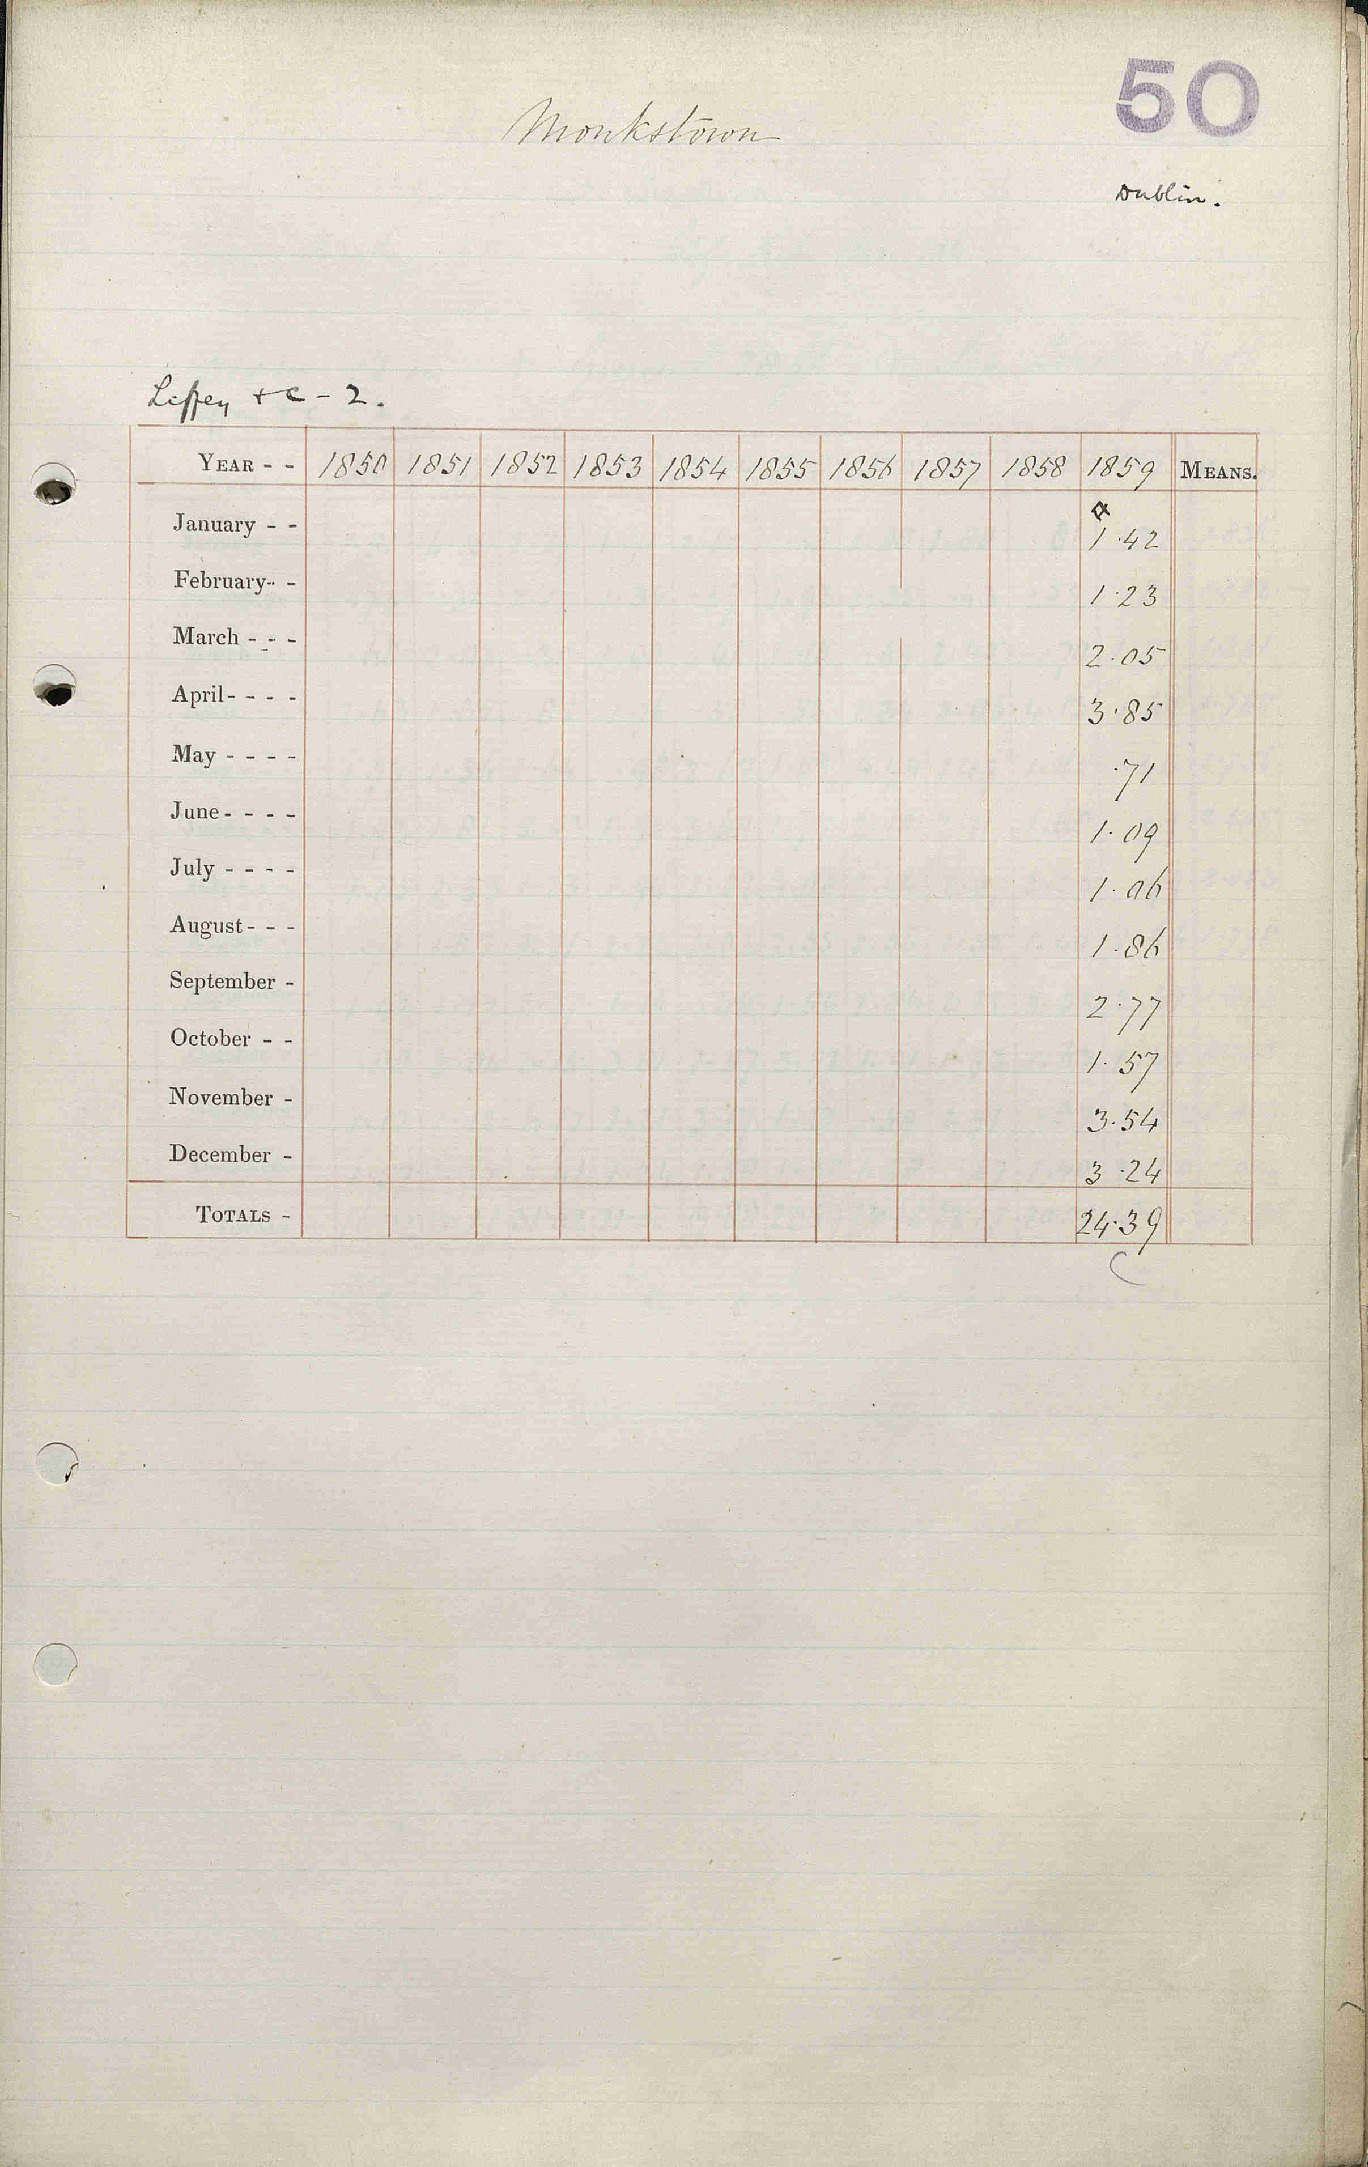 50
Monkstown
Dublin.
Liffey + C - 2.
YEAR - - 1850 1851 1852 1853 1854 1855 1856 1857 1858 1859 MEANS.
January - - 1.42
February - - 1.23
March - - - 2.05
April - - - - 3.85
May - - - - .71
June - - - - 1.09
July - - - - 1.06
August - - - 1.86
September - 2.77
October - - 1.57
November - 3.54
December - 3.24
TOTALS - 24.39